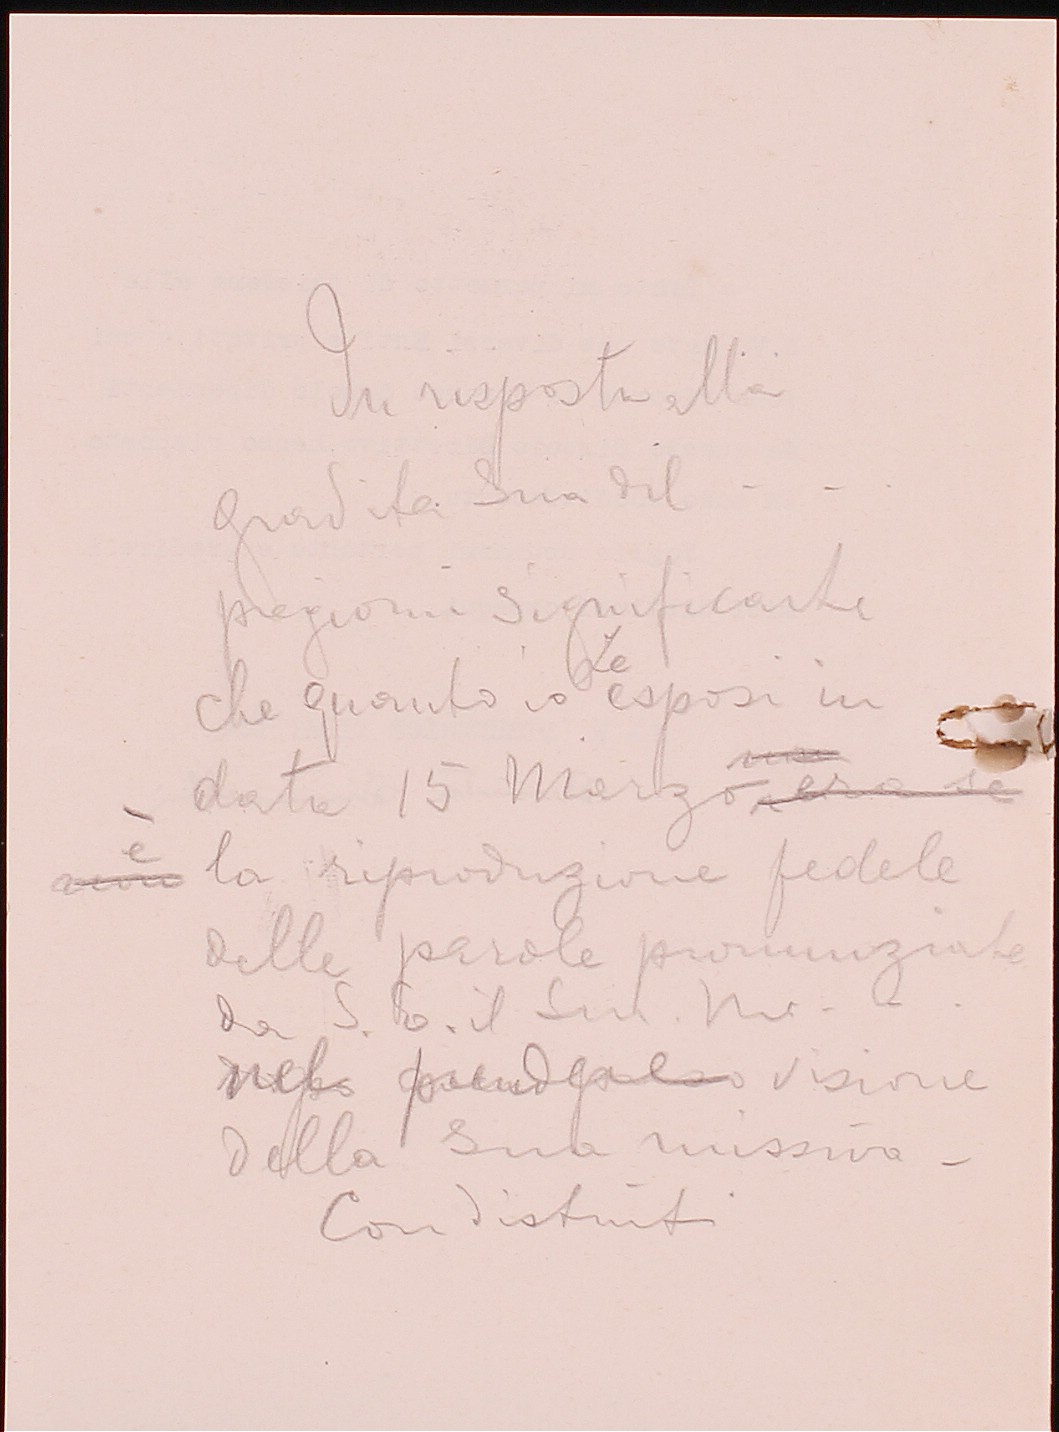 In risposta alla
gradita Sua del - - -
pregiomi significarLe
che quanto io Le esposi in
data 15 Marzo, era se
è la riproduzione fedele
delle parole pronunziate
da S. E. il
prendendo visione
della Sua missiva -
Con distinti